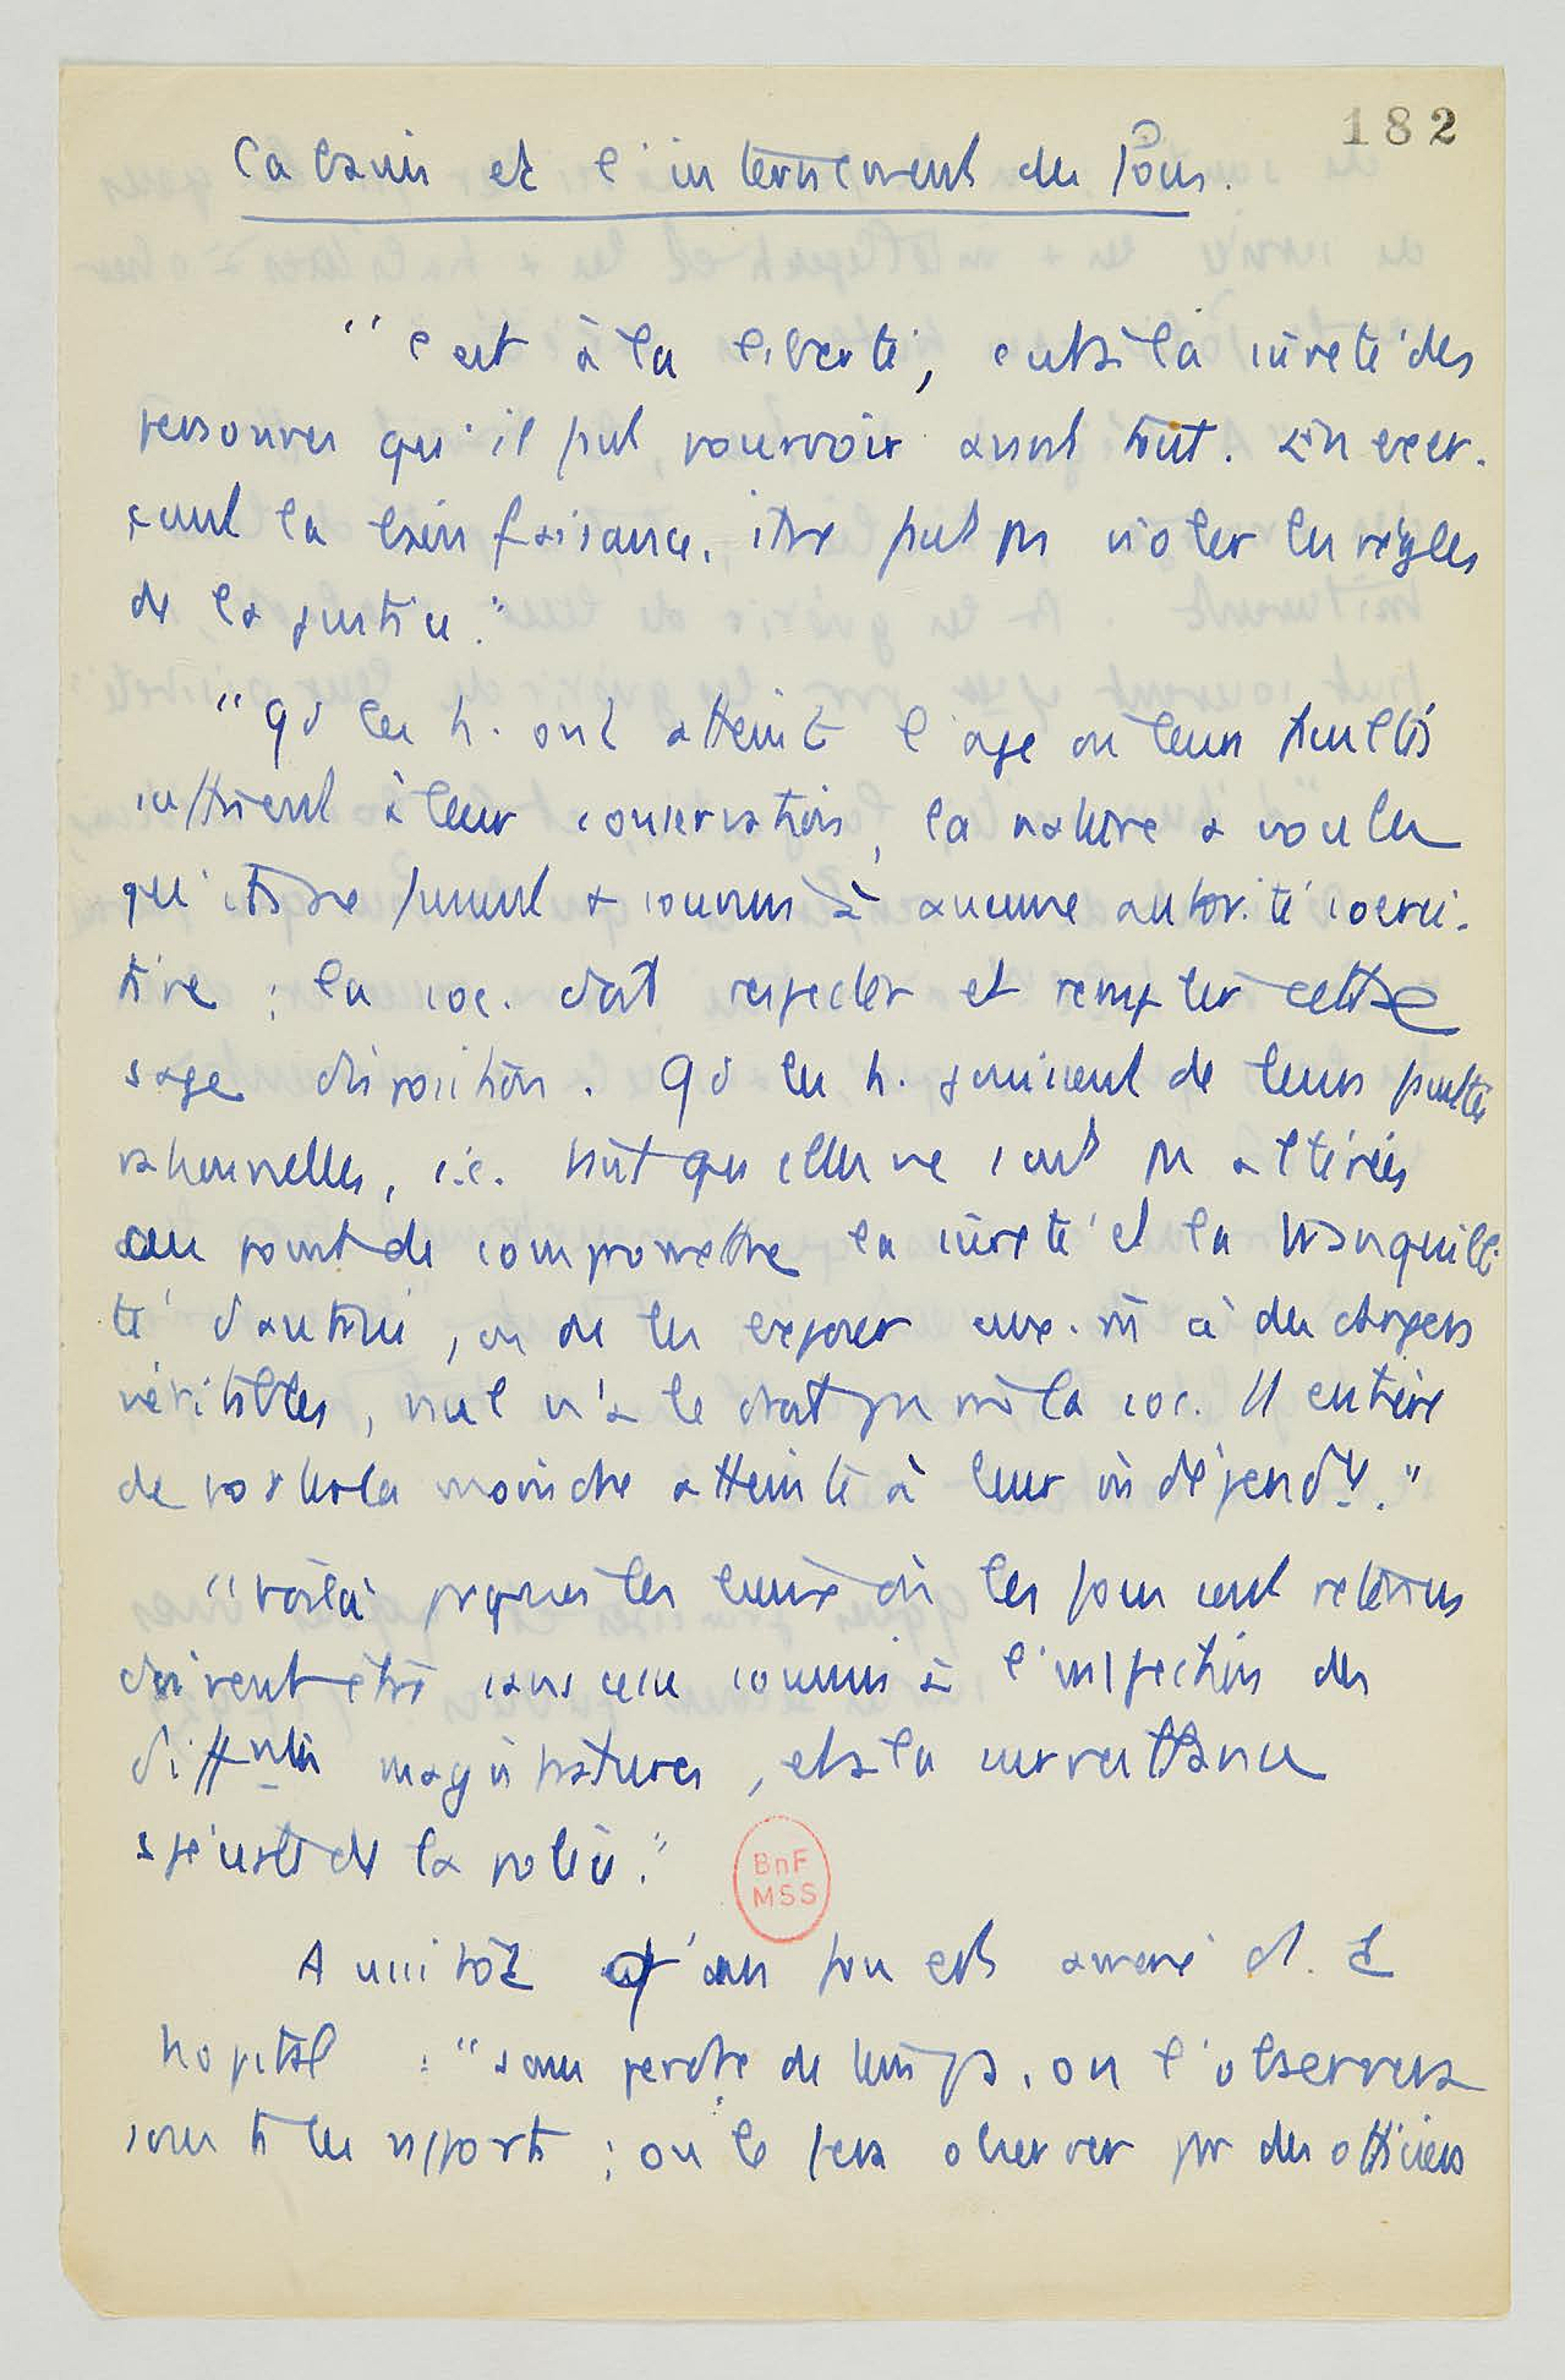 182
Cabanis et l'internement des fous.
"C'est à la liberté, c'est à la sûreté des
personnes qu'il faut pourvoir avant tout. En exer-
çant la bienfaisance, il ne faut pas violer les règles
de la justice."
"Qd les h. ont atteint l'age où leurs facultés
suffisent à leur conservation, la nature a voulu
qu'ils ne fussent + soumis à aucune autorité coerci-
tive ; la soc. doit respecter et remplir cette
sage disposition. Qd les h. jouissent de leurs facultés
rationnelles, i.e. tant qu'elles ne sont pas altérées
au point de compromettre la sûreté et la tranquilli-
té d'autrui, ou de les exposer eux-m̄ à des dangers
véritables, nul n'a le droit pas m̄ la soc. tt entière
de porter la moindre atteinte à leur indépendce."
"Voilà pourquoi les lieux où les fous sont retenus
doivent être sans cesse soumis à l'inspection des
difftes magistratures, et à la surveillance
spéciale de la police."
Aussitôt qu'un fou est amené ds
hopital : "sans perdre de temps, on l'observera
sous ts les rapports ; on le fera observer par des officiers
BnF
MSS